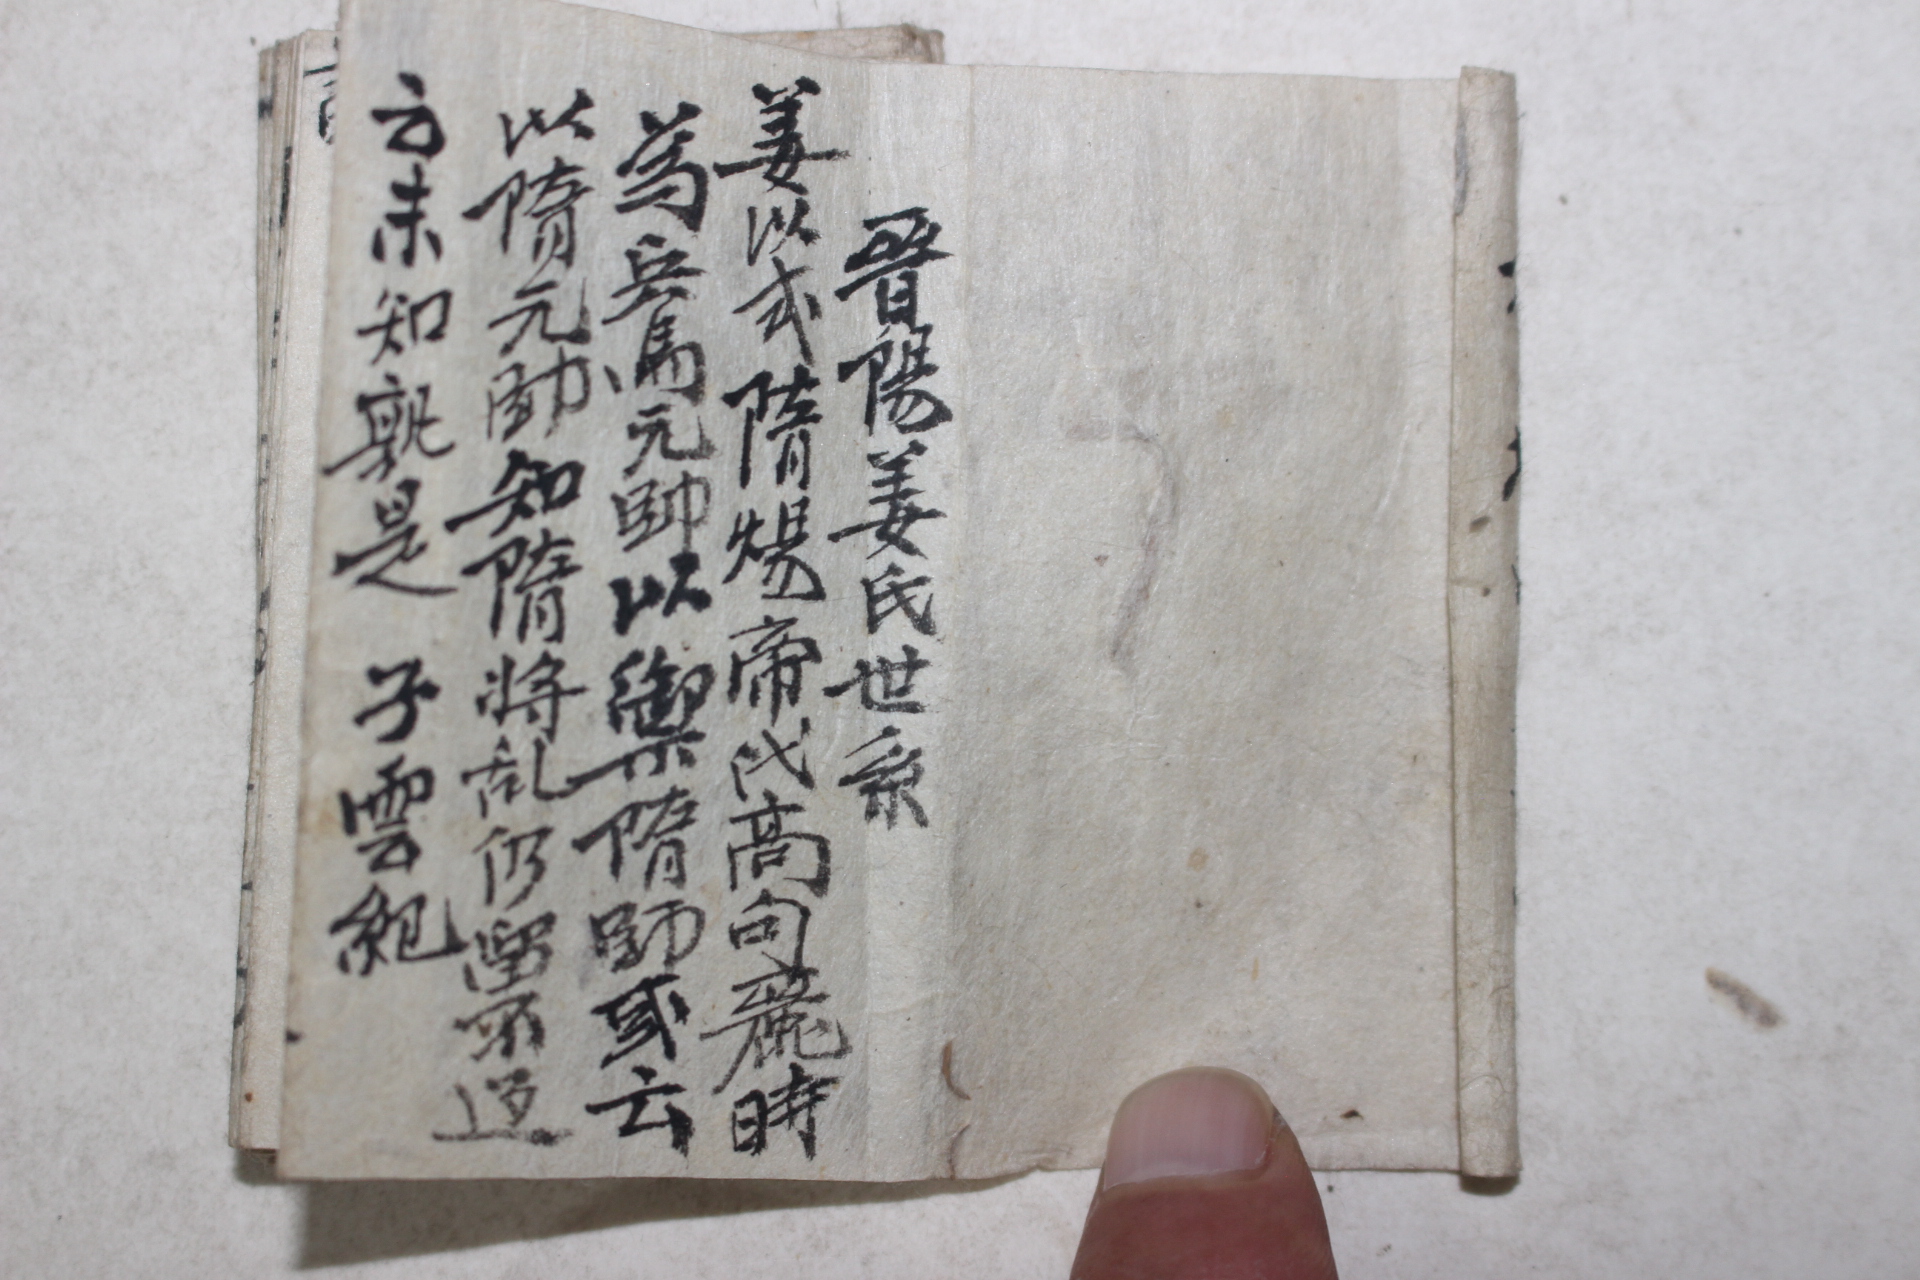 晉陽姜氏世系
姜以式 隋煬帝伐高句麗時
為兵馬元帥以禦隋師或云
以隋元帥知隋將乱仍留不返
云未知孰是 子雲紀